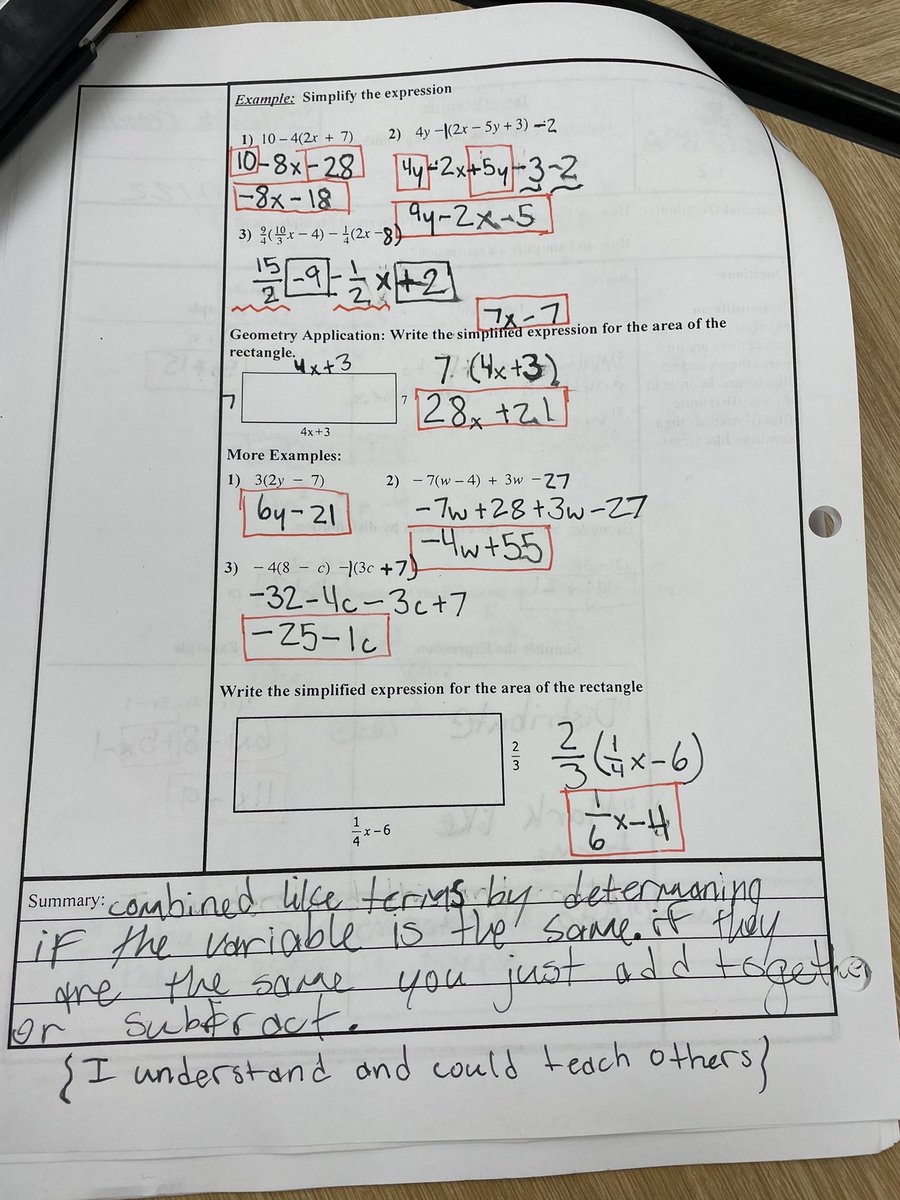 Example: Simplify the expression
1) 10 – 4(2x + 7)
2) 4y -1(2x – 5y + 3) -2
10-8x-28
4y-2x+5y-3-2
-8x-18
9y-2x-5
3) 9/4(10/3x – 4) – 1/4(2x -8)
15/2 -9 -1/2x +2
7x-7
Geometry Application: Write the simplified expression for the area of the
rectangle.
4x+3
7. (4x+3)
7
7
28x +21
4x+3
More Examples:
1) 3(2y – 7)
2) – 7(w – 4) + 3w -27
6y-21
-7w+28+3w-27
-4w+55
3) – 4(8 – c) -1(3c +7)
-32-4c-3c+7
-25-1c
Write the simplified expression for the area of the rectangle
2/3
2/3 (1/4x-6)
1/4x-6
1/6x-4
Summary: combined like terms by determaning
if the variable is the same. if they
are the same you just add together
or subtract.
{I understand and could teach others}